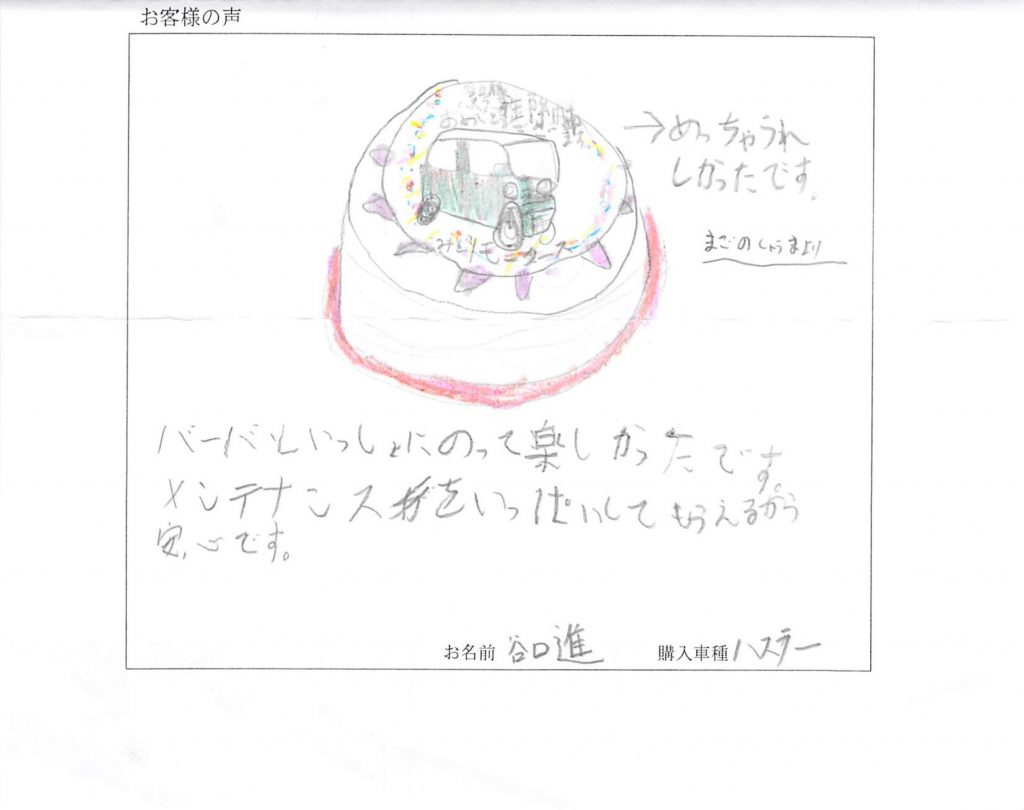 お客様の声
おめでとう
→めっちゃうれ
しかったです。
まごのしょうまより
みどりモータース
バーバといっしょにのって楽しかったです。
メンテナンスをいっぱいしてもらえるから
安心です。
お名前 谷口進 購入車種 ハスラー